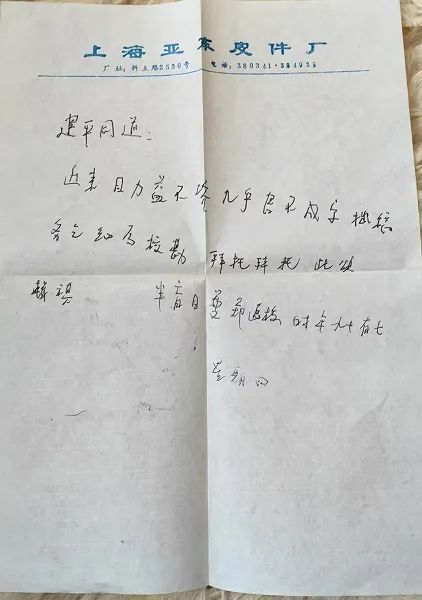 上海亚东皮件厂
厂址:斜土路2530号 电话:380341·384935
建平同道:
近来目力益不济几乎书不成字拙稿
务乞细为校勘 拜托拜托 此颂
半盲目叟郑逸梅 时年九十有七
星期四